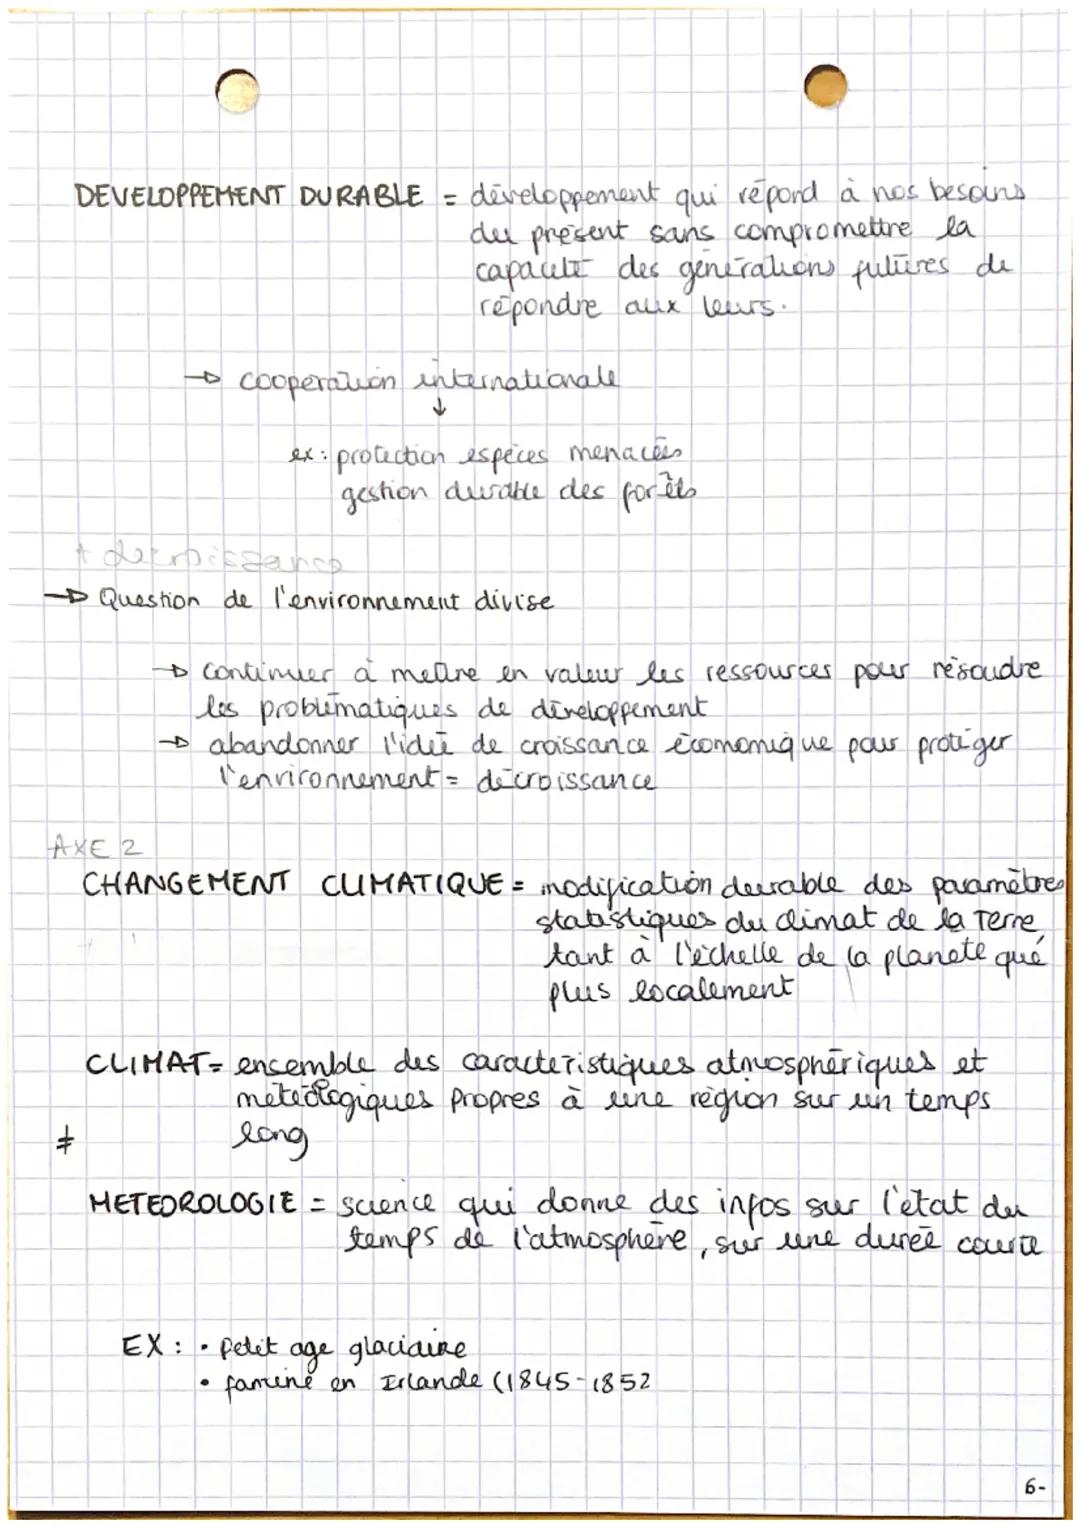 DEVELOPPEMENT DURABLE = développement qui répond à nos besoins
du présent sans compromettre la
capacité des générations futures de
répondre aux leurs.
→ coopération internationale
↓
ex : protection espèces menacées
gestion durable des forêts
+ décroissance
→ Question de l'environnement divise
→ continuer à mettre en valeur les ressources pour résoudre
les problématiques de développement
→ abandonner l'idée de croissance économique pour protéger
l'environnement = décroissance
AXE 2
CHANGEMENT CLIMATIQUE = modification durable des paramètres
statistiques du climat de la Terre,
tant à l'échelle de la planète que
plus localement
CLIMAT = ensemble des caractéristiques atmosphériques et
météologiques propres à une région sur un temps
long
≠
METEOROLOGIE = science qui donne des infos sur l'état du
temps de l'atmosphère, sur une durée courte
EX : • petit age glaciaire
• famine en Irlande (1845-1852
6-